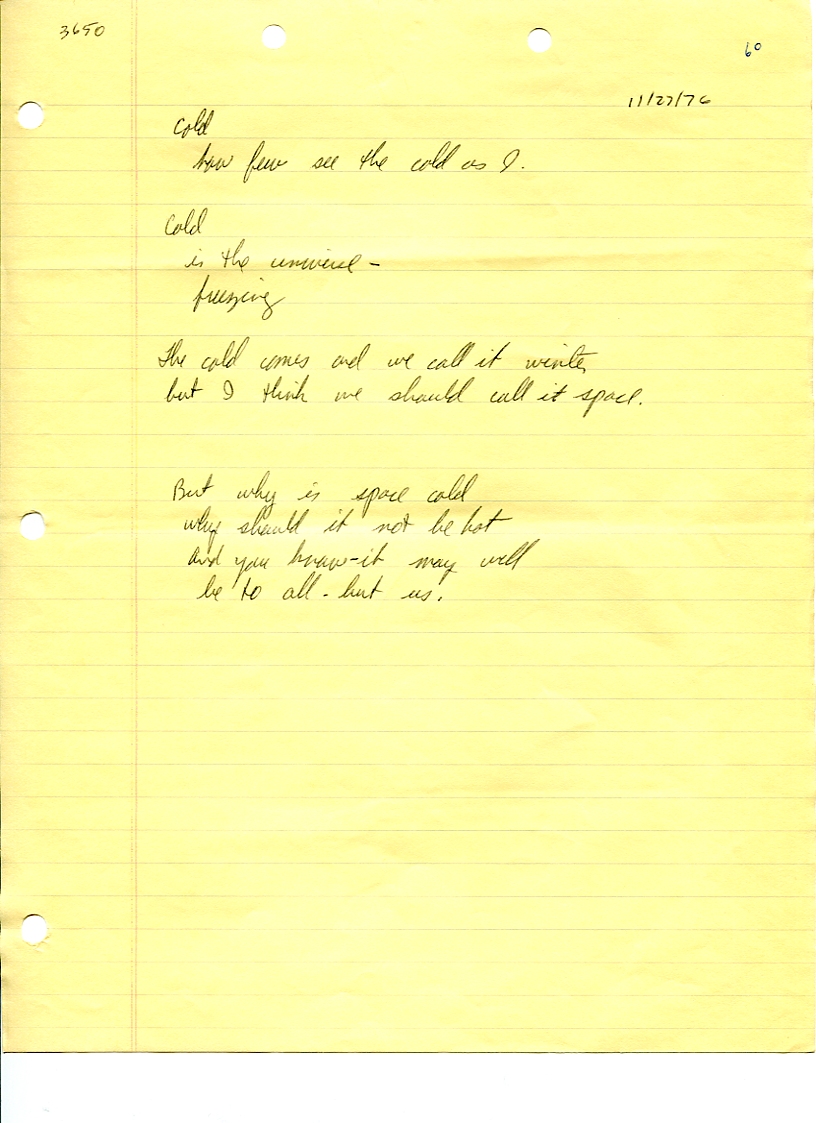 3650
60
11/27/76
Cold
how few see the cold as I.
Cold
is the universe -
freezing
The cold comes and we call it winter
but I think we should call it space.
But why is space cold
why should it not be hot
And you know-it may well
be to all - but us.